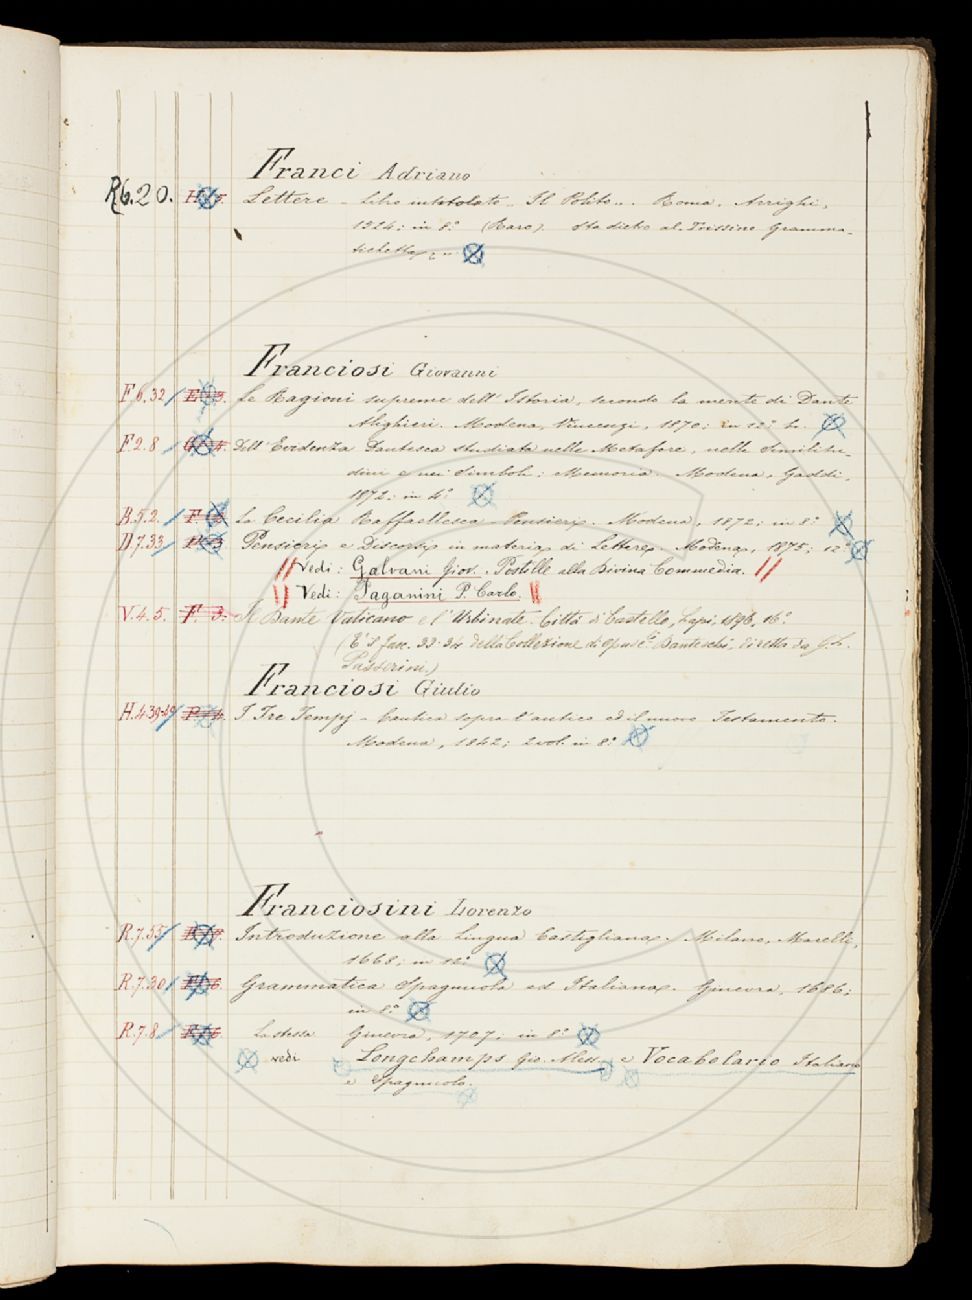 Franci Adriano
R6.20. Lettere - Libro intitolato - Il Polito... Roma, Arrighi,
1524; in 8.° (Raro). Sta dietro al Trissino Gramma-
tichetta
Franciosi Giovanni
F.6.32 Le Ragioni supreme dell'Istoria, secondo la mente di Dante
Alighieri. Modena, Vincenzi, 1870; in 12.°
F.2.8 Dell'Evidenza Dantesca studiata nelle Metafore, nelle Similitu-
dini e nei Simboli: Memoria. Modena, Gaddi,
1872; in 4.°
B.5.2. La Cecilia Raffaellesca - Pensieri. Modena, 1872; in 8.°
D.7.33 Pensieri e Discorsi in materia di Lettere. Modena, 1875; 12.°
Vedi: Galvani Giov. Postille alla Divina Commedia.
Vedi: Paganini P. Carlo.
V.4.5. Il Dante Vaticano e l'Urbinate. Città di Castello, Lapi, 1896, 16.°
(È il fasc. 33-34 della Collezione di Opusc. Danteschi, diretta da G. L.
Passerini.)
Franciosi Giulio
H.4.39-40 I Tre Tempj - Cantica sopra l'antico ed il nuovo Testamento.
Modena, 1842; 2 vol. in 8.°
Franciosini Lorenzo
R.7.55 Introduzione alla Lingua Castigliana. Milano, Marelli,
1668; in 12.°
R.7.20 Grammatica Spagnuola ed Italiana. Ginevra, 1686;
in 8.°
R.7.8 La stessa Ginevra, 1707; in 8.°
vedi Longchamps Gio. Aless. e Vocabolario Italiano
e Spagnuolo.